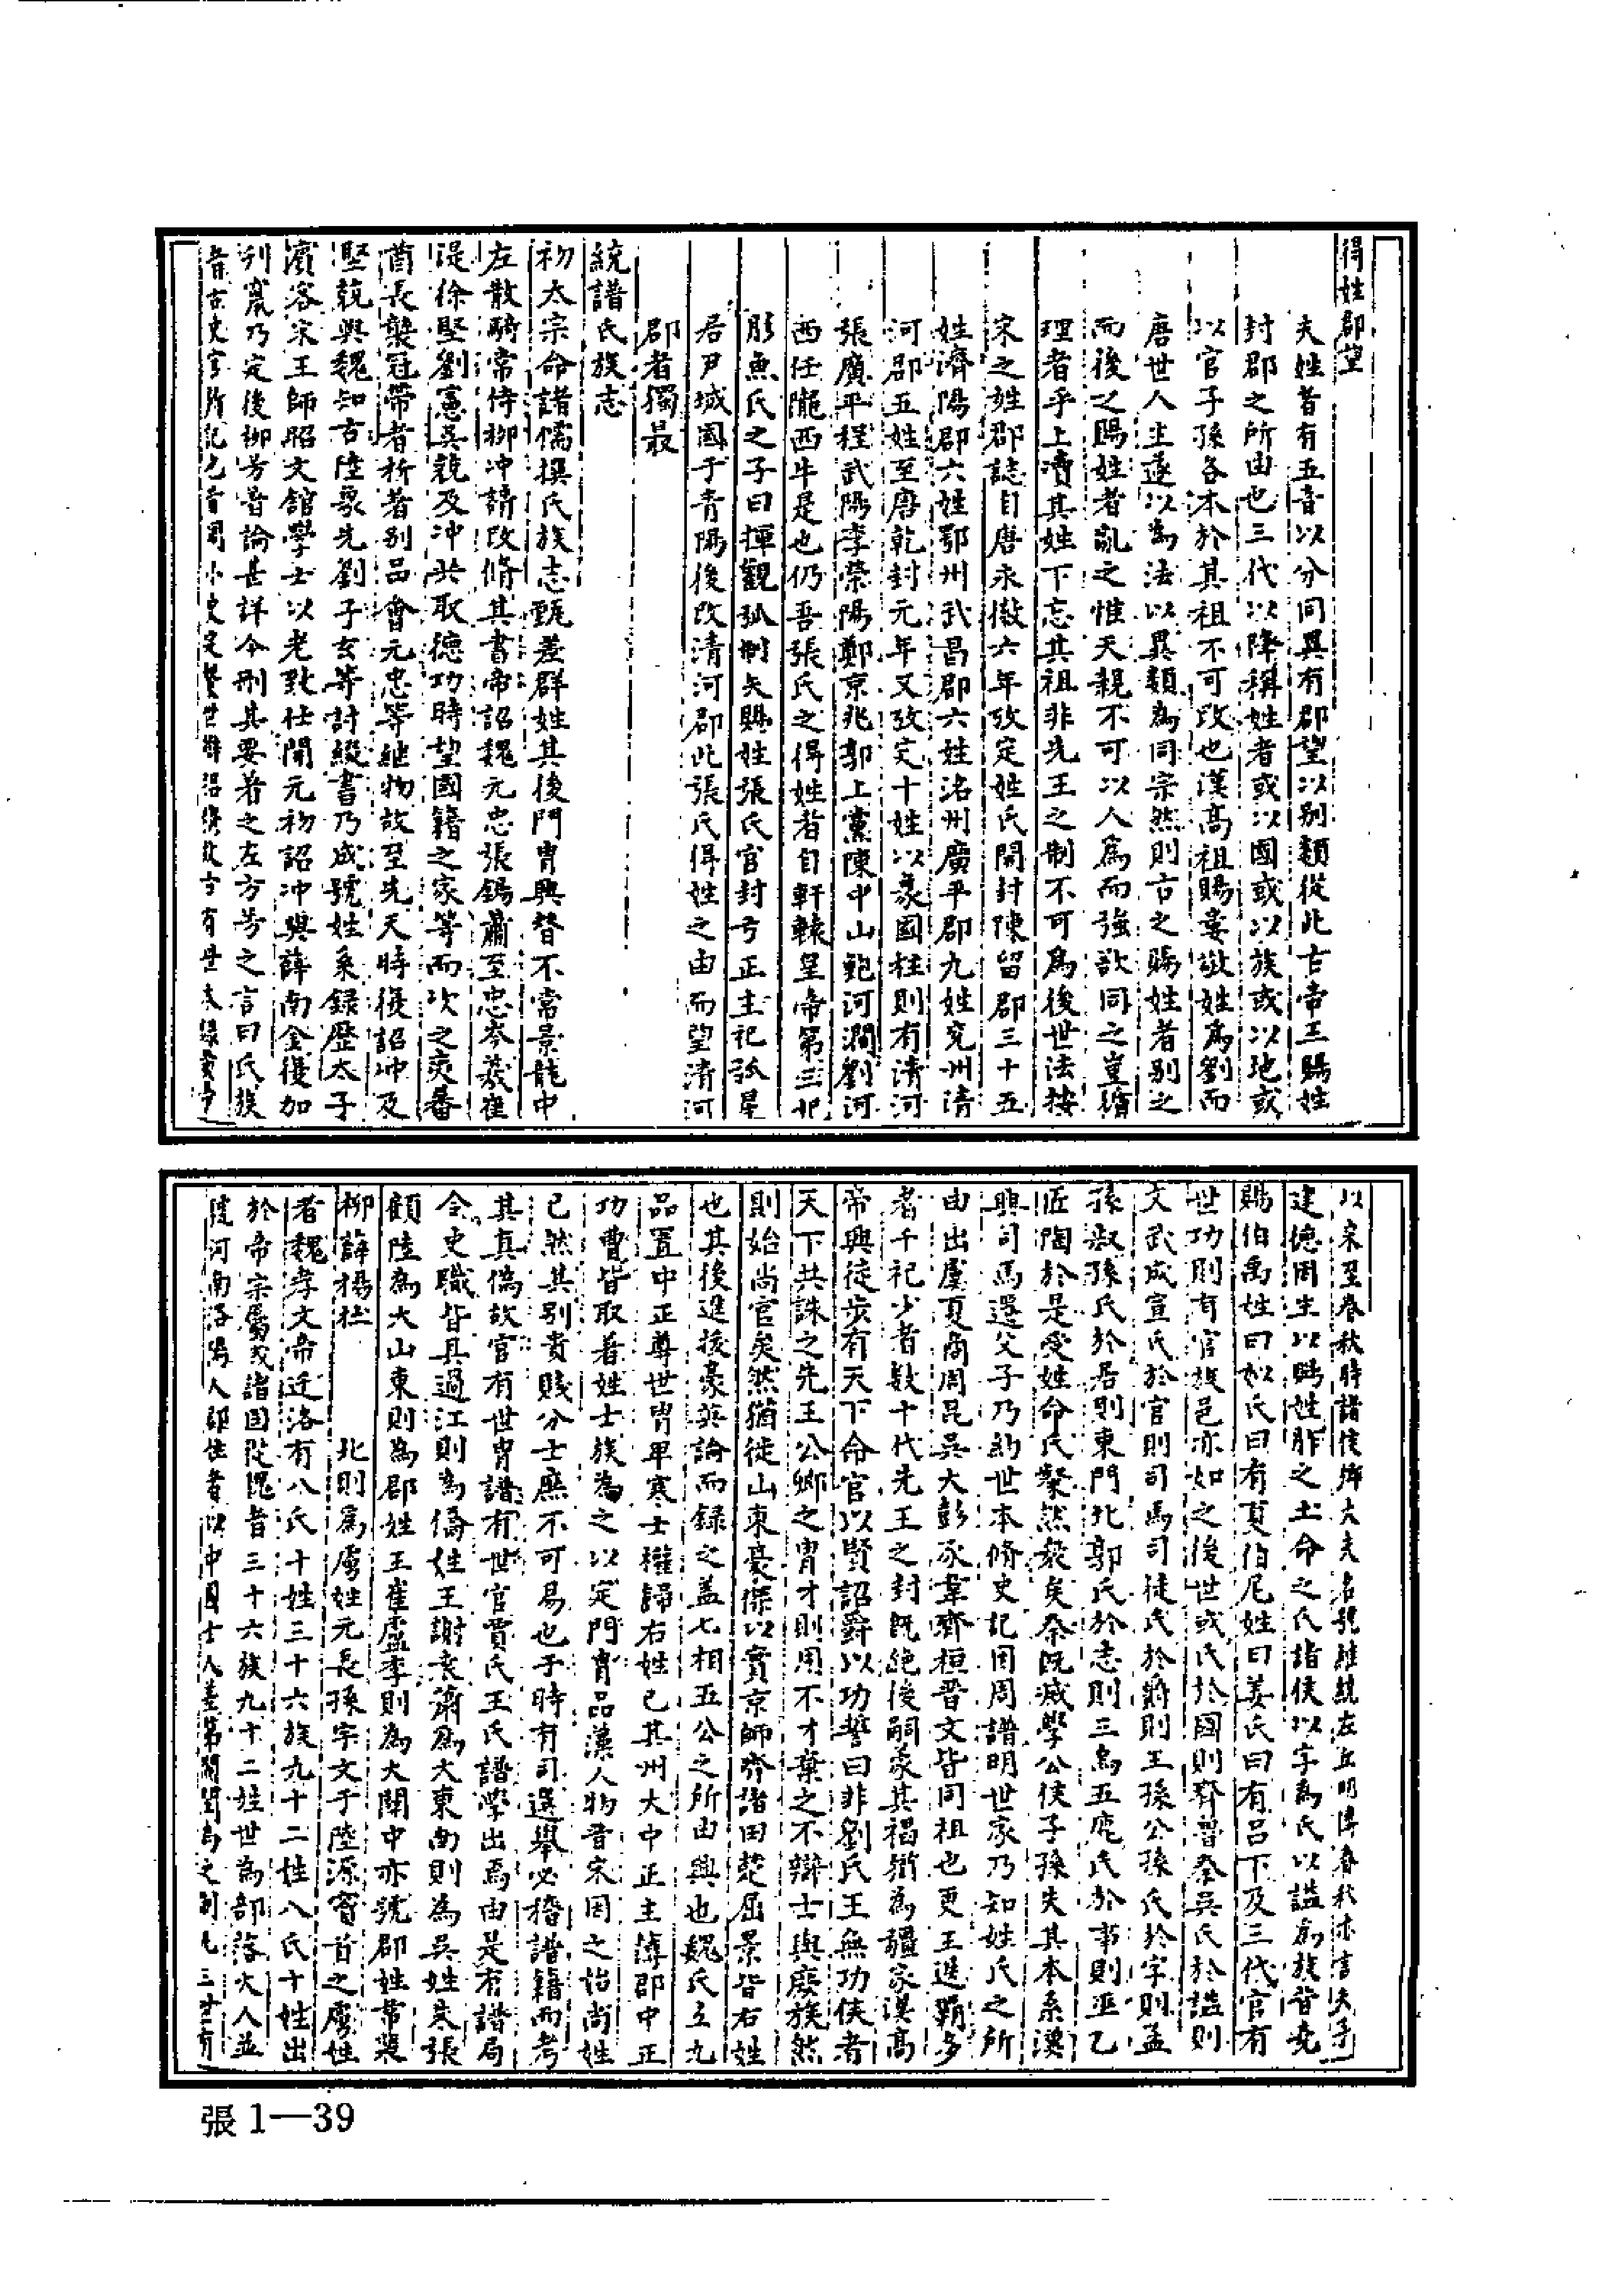 得姓郡望
夫姓者有五音以分同異有郡望以别類從此古帝王賜姓
封郡之所由也三代以降稱姓者或以國或以族或以地或
以官子孫各本於其祖不可改也漢高祖賜婁敬姓為劉而
唐世人主遂以為法以異類為同宗然則古之賜姓者别之
而後之賜姓者亂之惟天親不可以人為而強欲同之豈循
理者乎上瀆其姓下忘其祖非先王之制不可為後世法按
宋之姓郡誌自唐永徽六年攷定姓氏開封陳留郡三十五
姓濟陽郡六姓鄂州武昌郡六姓洺州廣平郡九姓兖州清
河郡五姓至唐乾封元年又攷定十姓以象國柱則有清河
張廣平程武陽李滎陽鄭京兆郭上黨陳中山鮑河澗劉河
西任隴西牛是也仍吾張氏之得姓者自軒轅皇帝第三妃
肜魚氏之子曰揮觀弧制矢賜姓張氏官封弓正主祀弧星
居尹城國于青陽後改清河郡此張氏得姓之由而望清河
郡者獨最
統譜氏族志
初太宗命諸儒撰氏族志甄差群姓其後門胄興替不常景龍中
左散騎常侍柳冲請改脩其書帝詔魏元忠張錫蕭至忠岑羲崔
湜徐堅劉憲吳兢及冲共取德功時望國籍之家等而次之夷蕃
酋長襲冠帶者析著别品會元忠等継物故至先天時復詔冲及
堅兢與魏知古陸象先劉子玄等討綴書乃成號姓系録歷太子
賓客宋王師昭文館學士以老致仕開元初詔冲與薛南金復加
刋竄乃定後柳芳著論甚詳今刪其要著之左方芳之言曰氏族
者古史官所記也昔周小史定繫世辯昭穆故古有世本録黄帝
以來至春秋時諸侯卿大夫名號継統左丘明傳春秋亦言天子
建德因生以賜姓胙之土命之氏諸侯以字為氏以謚為族昔堯
賜伯禹姓曰姒氏曰有夏伯尼姓曰姜氏曰有吕下及三代官有
世功則有官族邑亦如之後世或氏於國則齊晋秦吳氏於謚則
文武成宣氏於官則司馬司徒氏於爵則王孫公孫氏於字則孟
孫叔孫氏於居則東門北郭氏於志則三烏五鹿氏於事則巫乙
匠陶於是受姓命氏粲然衆矣秦既滅學公侯子孫失其本系漢
興司馬遷父子乃約世本脩史記因周譜明世家乃知姓氏之所
由出虞夏商周昆吳大彭豕韋齊桓晋文皆同祖也更王迭覇多
者千祀少者数十代先王之封既絶後嗣䝉其福猶為疆家漢高
帝興徒步有天下命官以賢詔爵以功誓曰非劉氏王無功侯者
天下共誅之先王公卿之胄才則用不才棄之不辯士與庶族然
則始尚官矣然猶徙山東豪傑以實京師齊諸田楚屈景皆右姓
也其後進後豪英論而録之盖七相五公之所由興也魏氏立九
品置中正尊世胄卑寒士權歸右姓已其州大中正主薄郡中正
功曹皆取著姓士族為之以定門胄品藻人物晋宋因之始尚姓
已然其别貴賤分士庶不可易也于時有司選舉必稽譜籍而考
其真偽故官有世胄譜有世官賈氏王氏譜學出焉由是有譜局
令史職皆具過江則為僑姓王謝袁蕭為大東南則為吳姓朱張
顧陸為大山東則為郡姓王崔盧李則為大關中亦號郡姓韋裴
柳薛楊杜　北則為虜姓元長孫宇文于陸源竇首之虜姓
者魏孝文帝迁洛有八氏十姓三十六族九十二姓八氏十姓出
於帝宗屬或諸国從魏者三十六族九十二姓世為部落大人並
號河南洛陽人郡姓者以中國士人差第閥閱為之制凡三世有
張 1—39